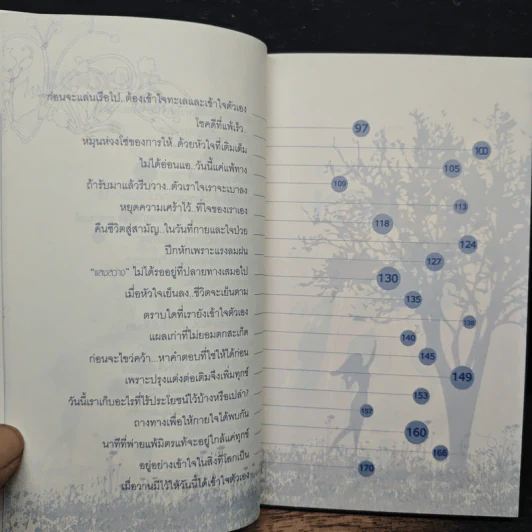 ก่อนจะแล่นเรือไป..ต้องเข้าใจทะเลและเข้าใจตัวเอง
97
โชคดีที่แพ้เร็ว..
100
หมุนห่วงโซ่ของการให้..ด้วยหัวใจที่เติมเต็ม
105
ไม่ได้อ่อนแอ..วันนี้แค่แพ้ทาง
109
ถ้ารับมาแล้วรีบวาง..ตัวเราใจเราจะเบาลง
113
หยุดความเศร้าไว้..ที่ใจของเราเอง
118
คืนชีวิตสู่สามัญ..ในวันที่กายและใจป่วย
124
ปีกหักเพราะแรงลมฝน
127
"แสงสว่าง" ไม่ได้รออยู่ที่ปลายทางเสมอไป
130
เมื่อหัวใจเย็นลง..ชีวิตจะเย็นตาม
135
ตราบใดที่เรายังเข้าใจตัวเอง
138
แผลเก่าที่ไม่ยอมตกสะเก็ด
140
ก่อนจะไขว่คว้า...หาคำตอบที่ใช่ให้ได้ก่อน
145
เพราะปรุงแต่งต่อเติมจึงเพิ่มทุกข์
149
วันนี้เราเก็บอะไรที่ไร้ประโยชน์ไว้บ้างหรือเปล่า?
153
ถางทางเพื่อให้กายใจได้พบกัน
157
นาทีที่พ่ายแพ้มิตรแท้จะอยู่ใกล้แค่ทุกข์
160
อยู่อย่างเข้าใจในสิ่งที่โลกเป็น
166
เมื่อวานมีไว้ให้วันนี้ได้เข้าใจตัวเอง
170